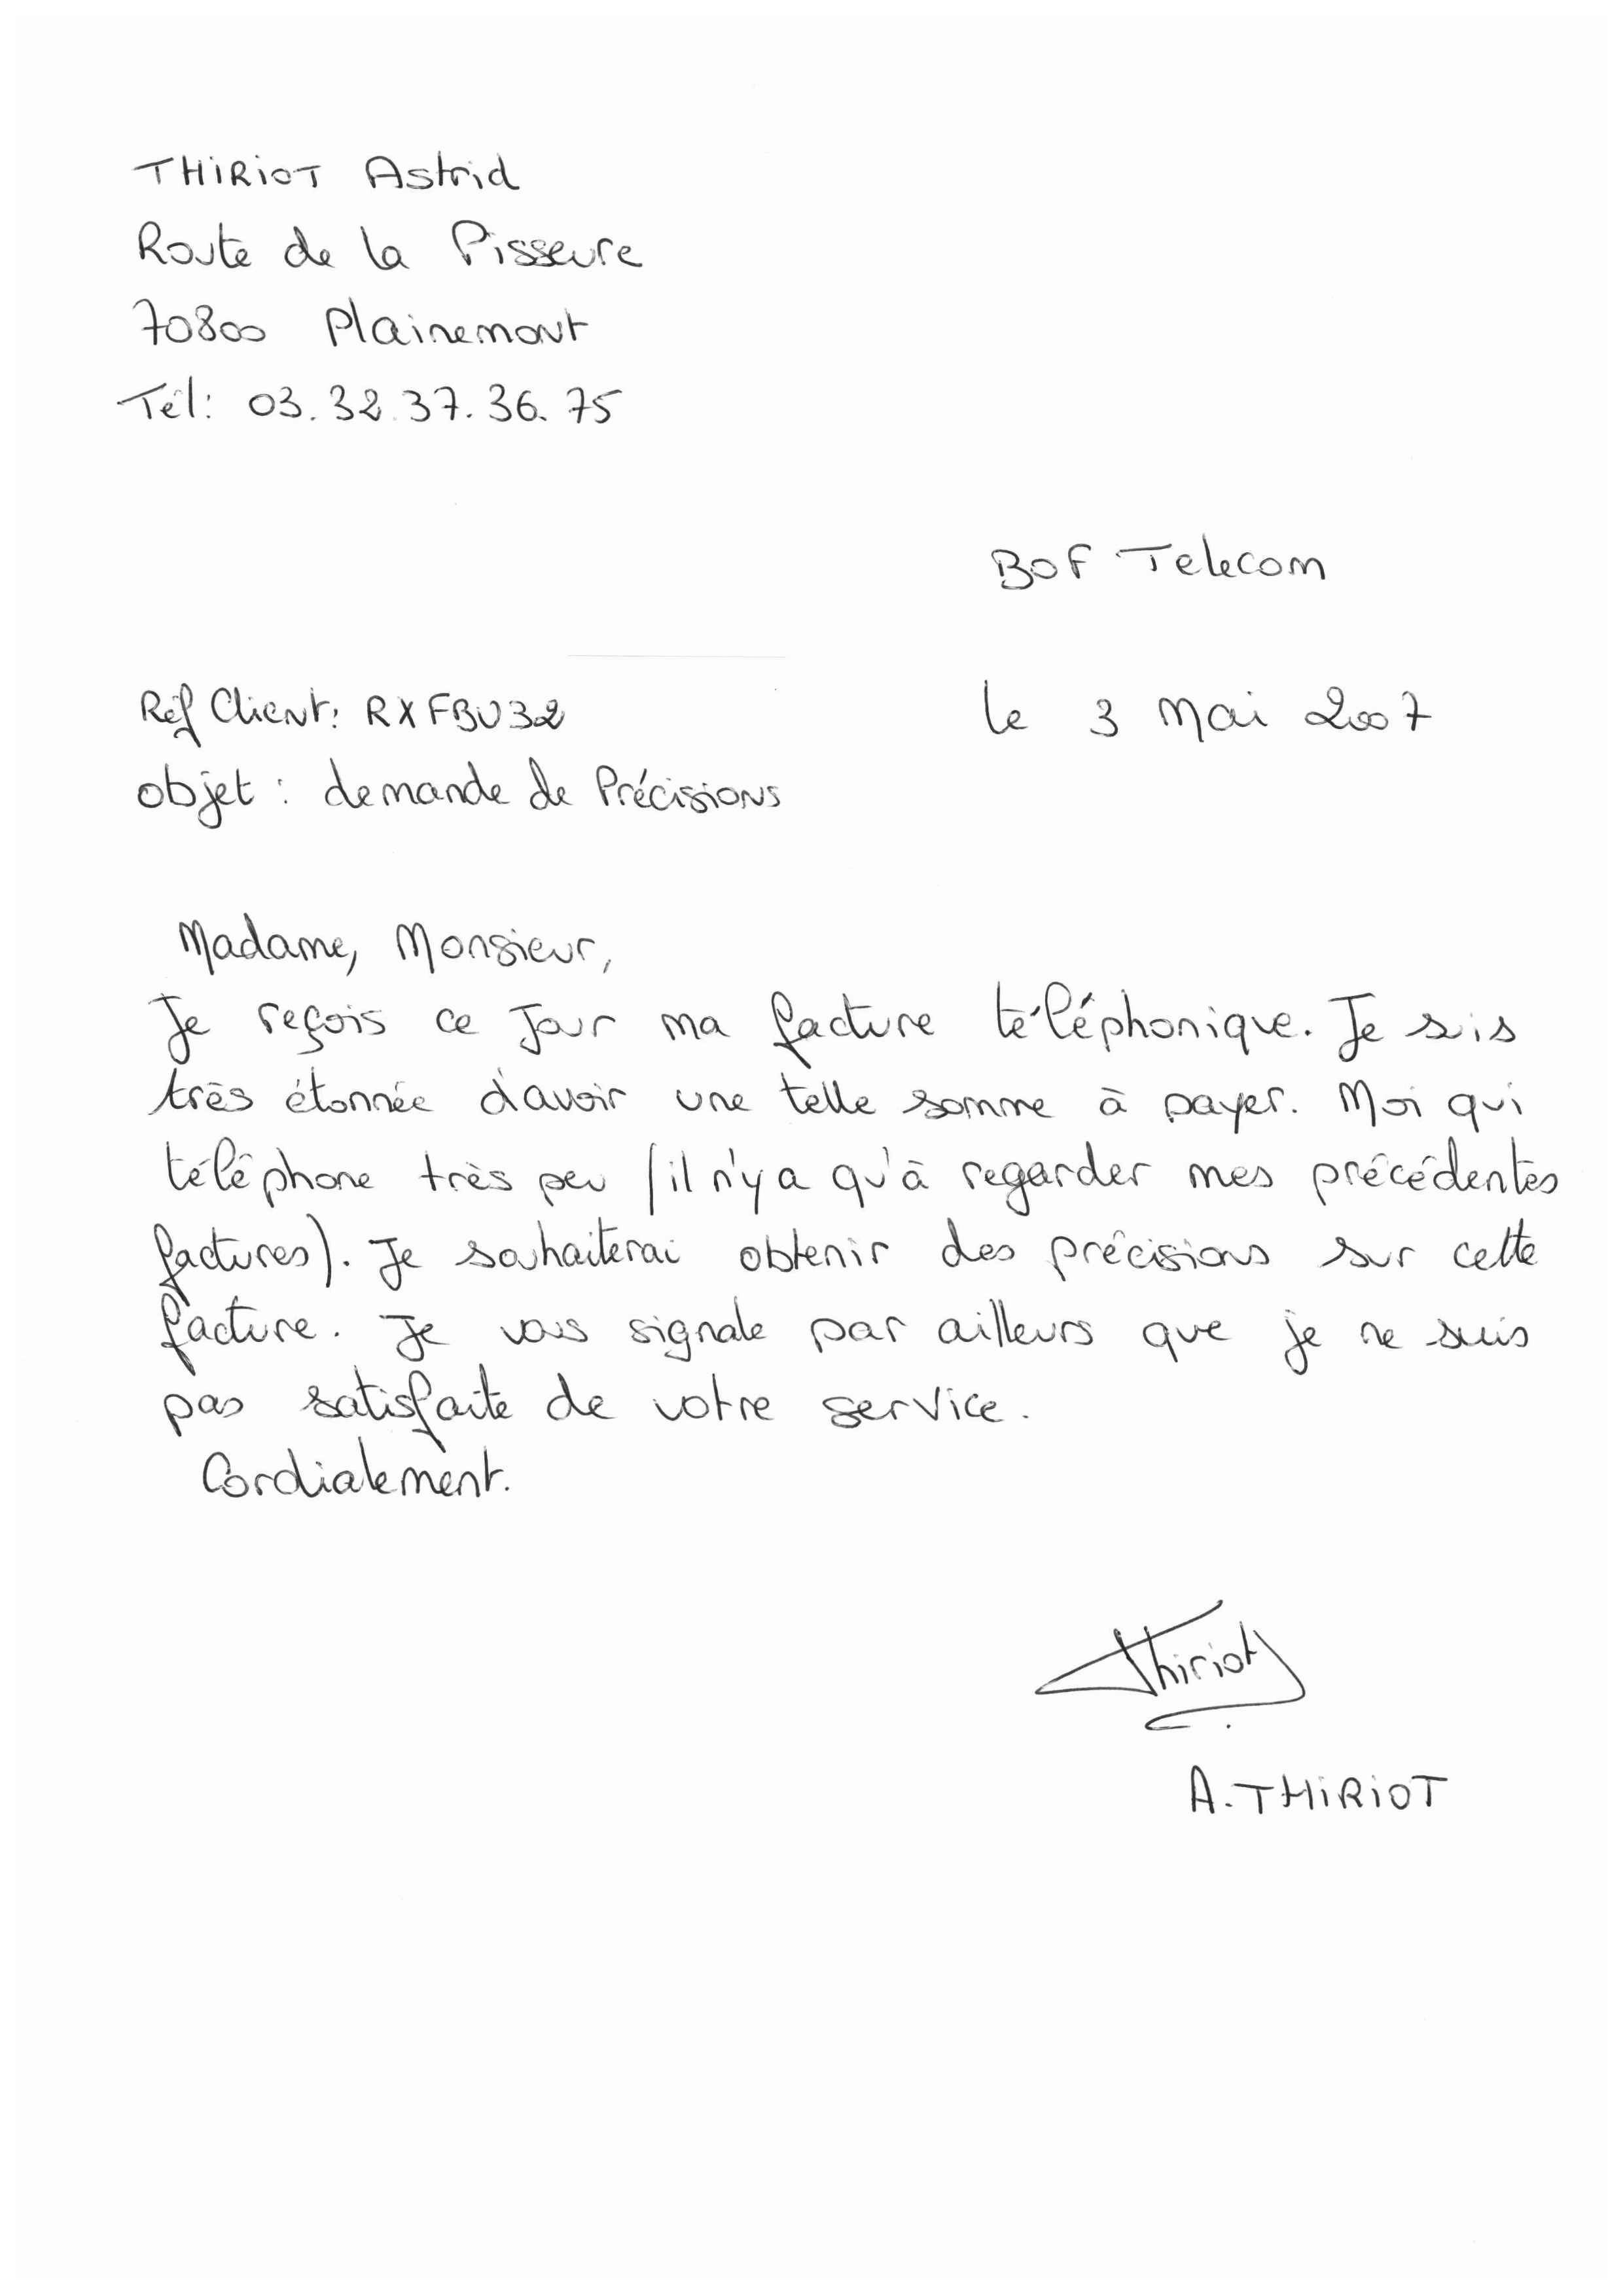 THIRIOT Astrid
Route de la Pisseure
70800 Plainemont
Tél: 03.32.37.36.75
BOF Telecom
Réf Client: RXFBU32
le 3 Mai 2007
objet : demande de Précisions
Madame, Monsieur,
Je reçois ce jour ma facture téléphonique. Je suis
très étonnée d'avoir une telle somme à payer. Moi qui
téléphone très peu (il n'y a qu'à regarder mes précédentes
factures). Je souhaiterai obtenir des précisions sur cette
facture. Je vous signale par ailleurs que je ne suis
pas satisfaite de votre service.
Cordialement.
Thiriot
A. THIRIOT